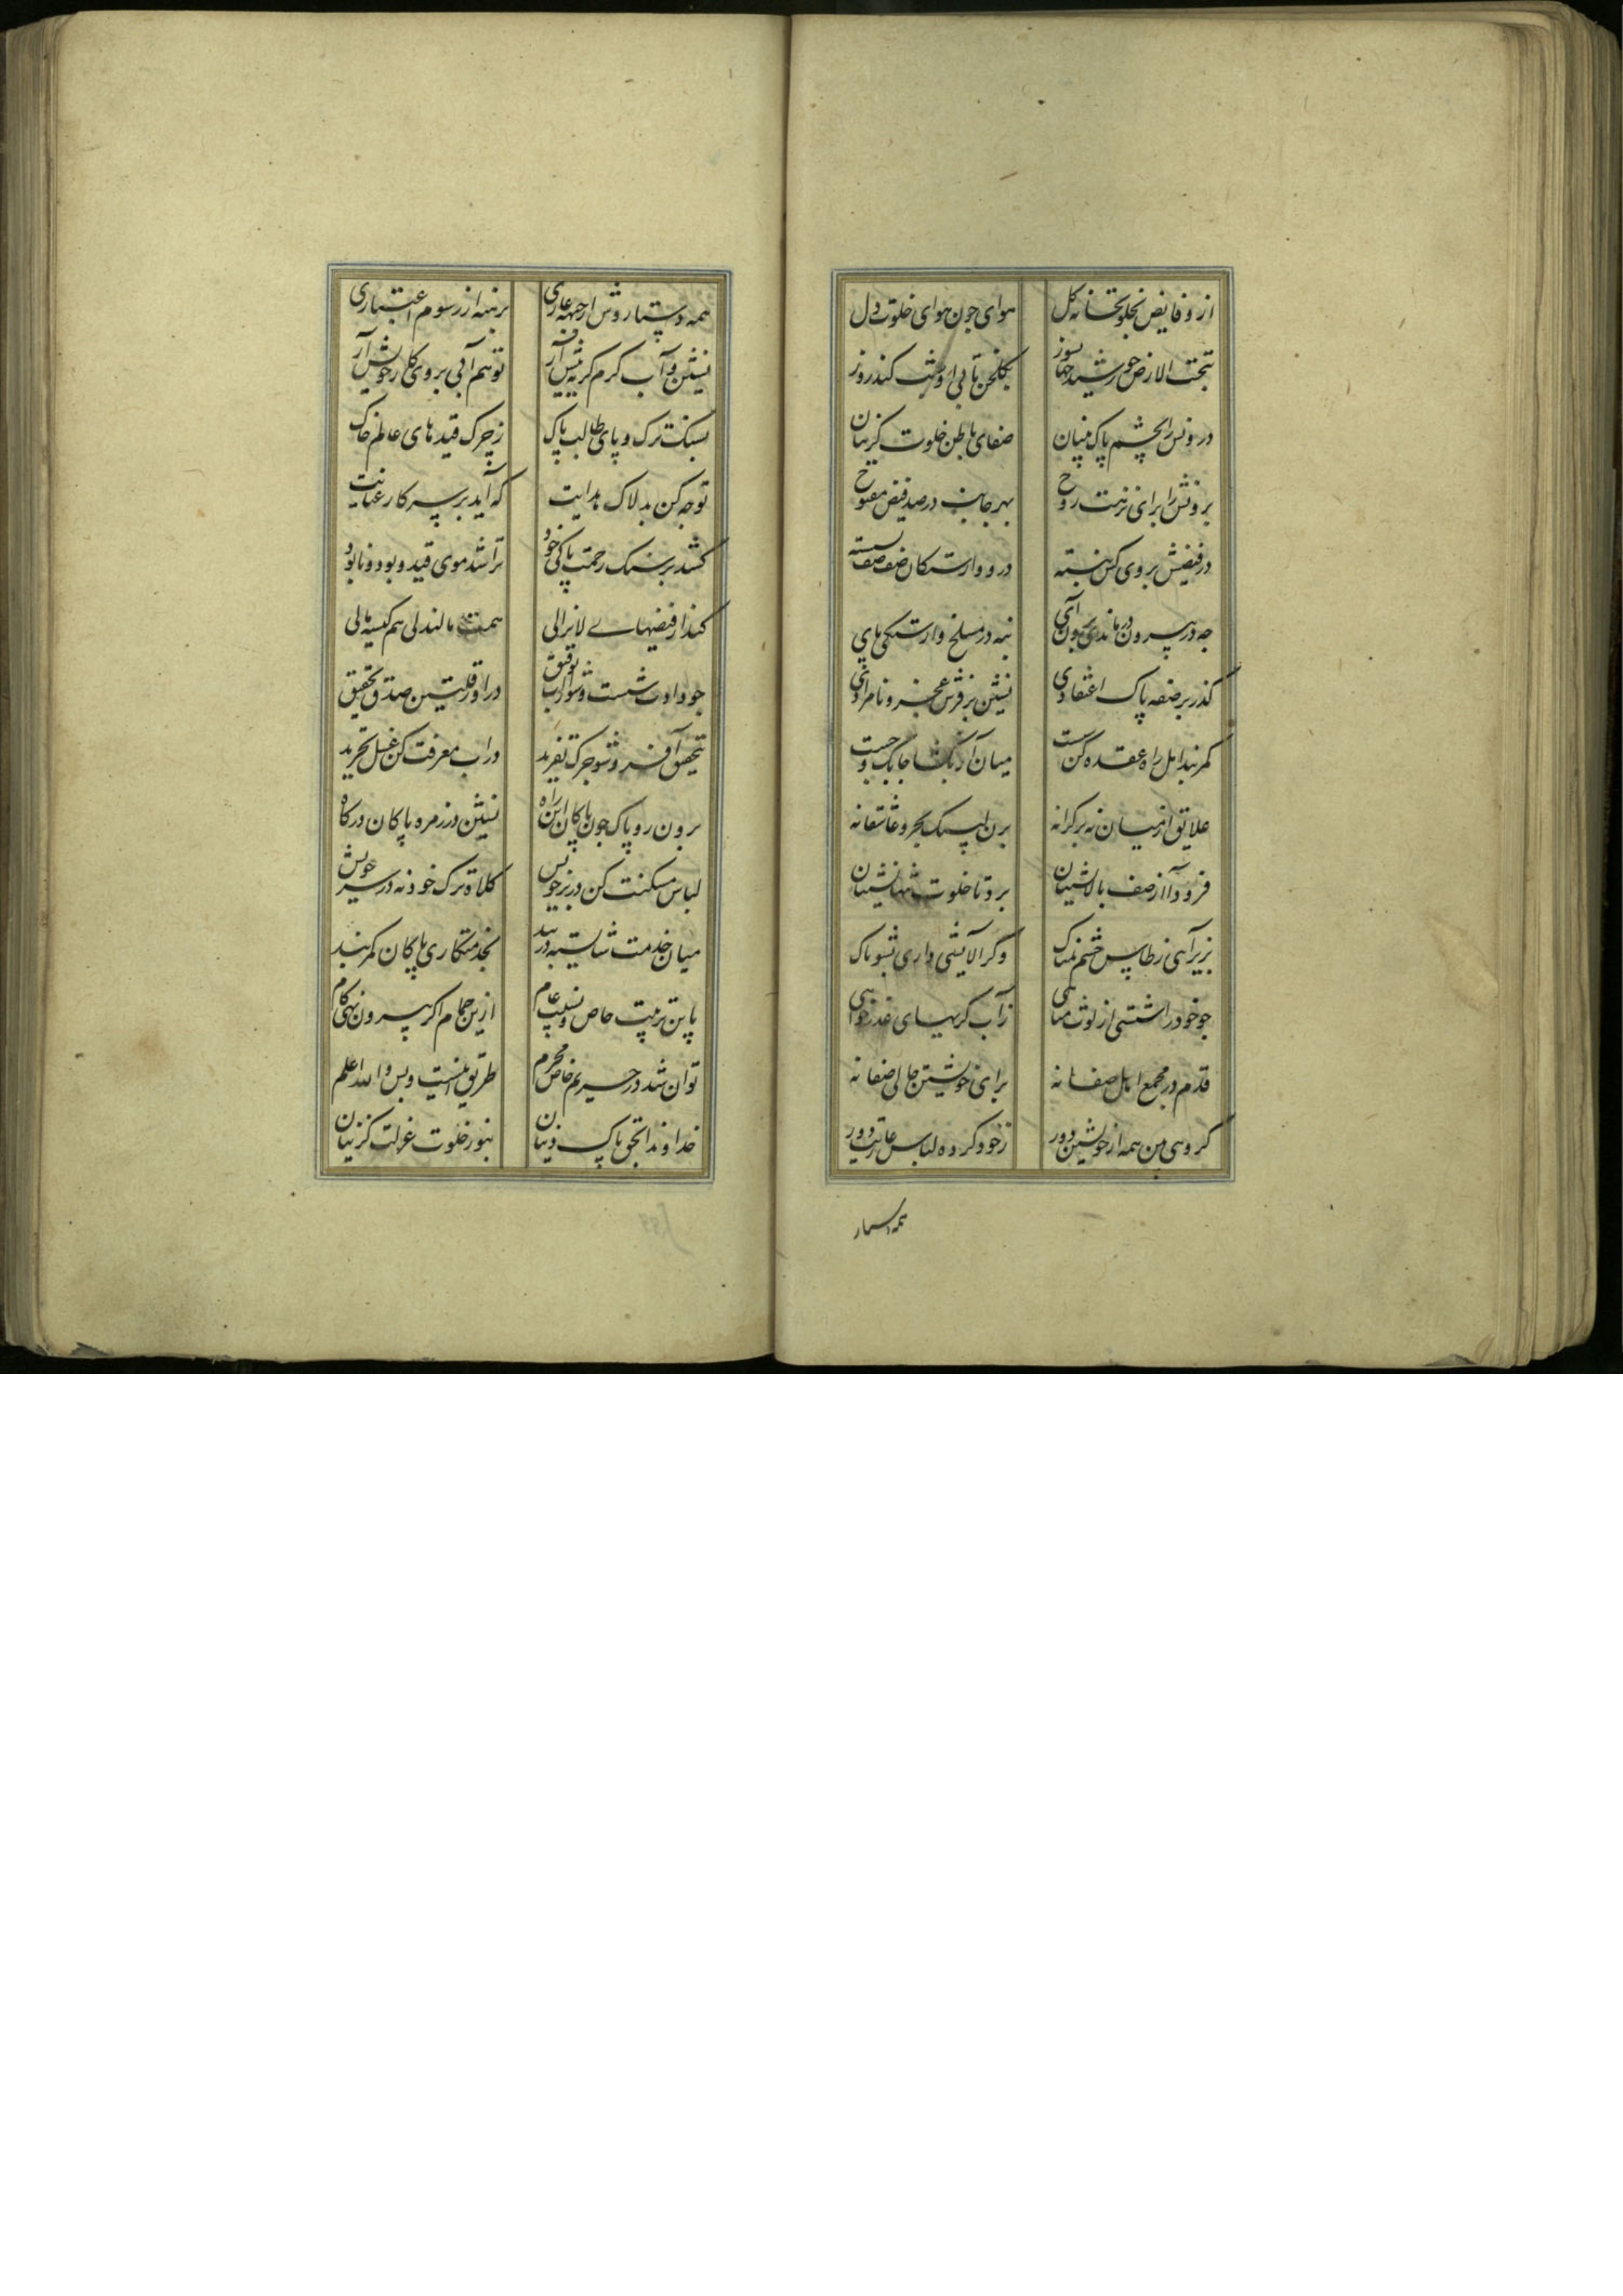 ازو فایض بخلوتخانه کل
هوای چون هوای خلوت دل
بتحت الارض خورشید جهانسوز
بگلخن تابی او شب کند روز
درونس را بچشم پاک بینان
صفای باطن خلوت گزینان
برونش را برای نزهت روح
بهر جانب در صد فیض مفتوح
در فیضش بروی کس نبسته
درو وارستکان صف صف نشسته
چه در بیرون در ماندی درون آی
بنه در مسلخ وارستکی پای
کذر بر صفه پاک اعتقادی
نشین بر فرش عجز و نامرادی
کمربند امل را عقده کن سست
میان آز بکشا چابک و چست
علایق از میان نه بر کرانه
بزن لنک تجرد عاشقانه
فرود آ از صف بالانشینان
برو تا خلوت تنهانشینان
بزیر آبی ز طاس چشم نمناک
وگر آلایشی داری بشو پاک
چو خود را شستی از لوث مناهی
ز آب کریهای عذرخواهی
قدم در مجمع اهل صفا نه
برای خویشتن جای صفا نه
گروهی بین همه از خویشتن دور
ز خود کرده لباس عاریت دور
همه دستار
همه دستار وش از جبهه عاری
برهنه از رسوم اعتباری
نشین و آب کرم کریه پیش آر
تو هم آبی بروی کار خویش آر
بسنک ترک و پای طالب پاک
ز چرک قیدهای عالم خاک
توجه کن بدلاک هدایت
که آید بر سر کار عنایت
کشد بر سنک رحمت پاکی خود
تراشد موی قید و بود و نابود
کند از فیضهای لایزالی
همت مالندلی هم کیسه مالی
چو دادت شست و شو از آب توفیق
درآ در قلتین صدق و تحقیق
بحوض آ فرو شو چرک تفرید
در آب معرفت کن غسل تجرید
برون رو پاک چون پاکان این راه
نشین در زمره پاکان درکاه
لباس مسکنت کن در بر خویش
کلاه ترک خود نه در سر خویش
میان خدمت شایسته دربند
بخدمتکاری پاکان کمر بند
باین ترتیب خاص و نسبت عام
ازین حمام اگر بیرون نهی کام
توان شد در حریم خاص محرم
طریق اینست و بس والله اعلم
خداوندا بحق پاک دینان
بنور خلوت عزلت کزینان